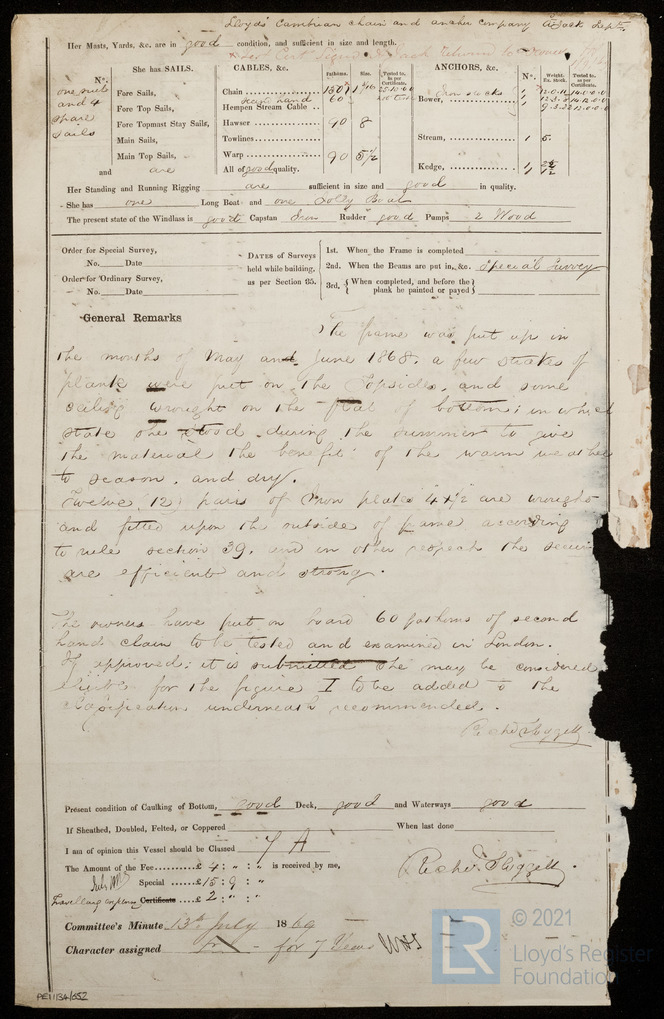 Lloyds Cambrian chain and anchor company
Her Masts, Yards, &c. are in good condition, and sufficient in size and length.
She has SAILS.
N°.
one suit
and 4
spare
sails
Fore Sails,
Fore Top Sails,
Fore Topmast Stay Sails,
Main Sails,
Main Top Sails,
and are
CABLES, &c. Fathoms. Size. Tested to, as per Certificate.
Chain
second hand 60
Hempen Stream Cable
Hawser 90 8
Towlines
Warp 90 5½
All of good quality.
ANCHORS, &c. N°. Weight. Ex. Stock. Tested to, as per Certificate.
Bower,
Stream, 1
Kedge,
Her Standing and Running Rigging are sufficient in size and good in quality.
She has one Long Boat and one Jolly Boat
The present state of the Windlass is good Capstan Iron Rudder good Pumps 2 Wood
Order for Special Survey,
No. Date
Order for Ordinary Survey,
No. Date
DATES of Surveys
held while building,
as per Section 35.
1st. When the Frame is completed
2nd. When the Beams are put in, &c. Special Survey
3rd, { When completed, and before the plank be painted or payed }
General Remarks
The frame was put up in
the months of May and June 1868, a few strakes of
plank were put on the Topsides, and some
ceiling wrought on the flat of bottom; in which
state she stood during the summer to give
the material the benefit of the warm weather
to season, and dry.
Twelve (12) pairs of Iron plates 4 x ½ are wrought
and fitted upon the outside of frame according
to rule section 39, and in other respects the
are efficient and strong.
The owners have put on board 60 fathoms of second
hand chain to be tested and examined in London.
If approved; it is submitted she may be considered
eligible for the figure 1 to be added to the
classification underneath recommended.
Present condition of Caulking of Bottom, good Deck, good and Waterways good
If Sheathed, Doubled, Felted, or Coppered When last done
I am of opinion this Vessel should be Classed 7 A
The Amount of the Fee......£ 4 : " : " is received by me,
Special ......£ 15 : 9 : "
Travelling expenses Certificate ...£ 2 : " : "
Committee's Minute 13th July 1869
Character assigned for 7 Years
PE1134/652
LR
© 2021
Lloyd's Register
Foundation